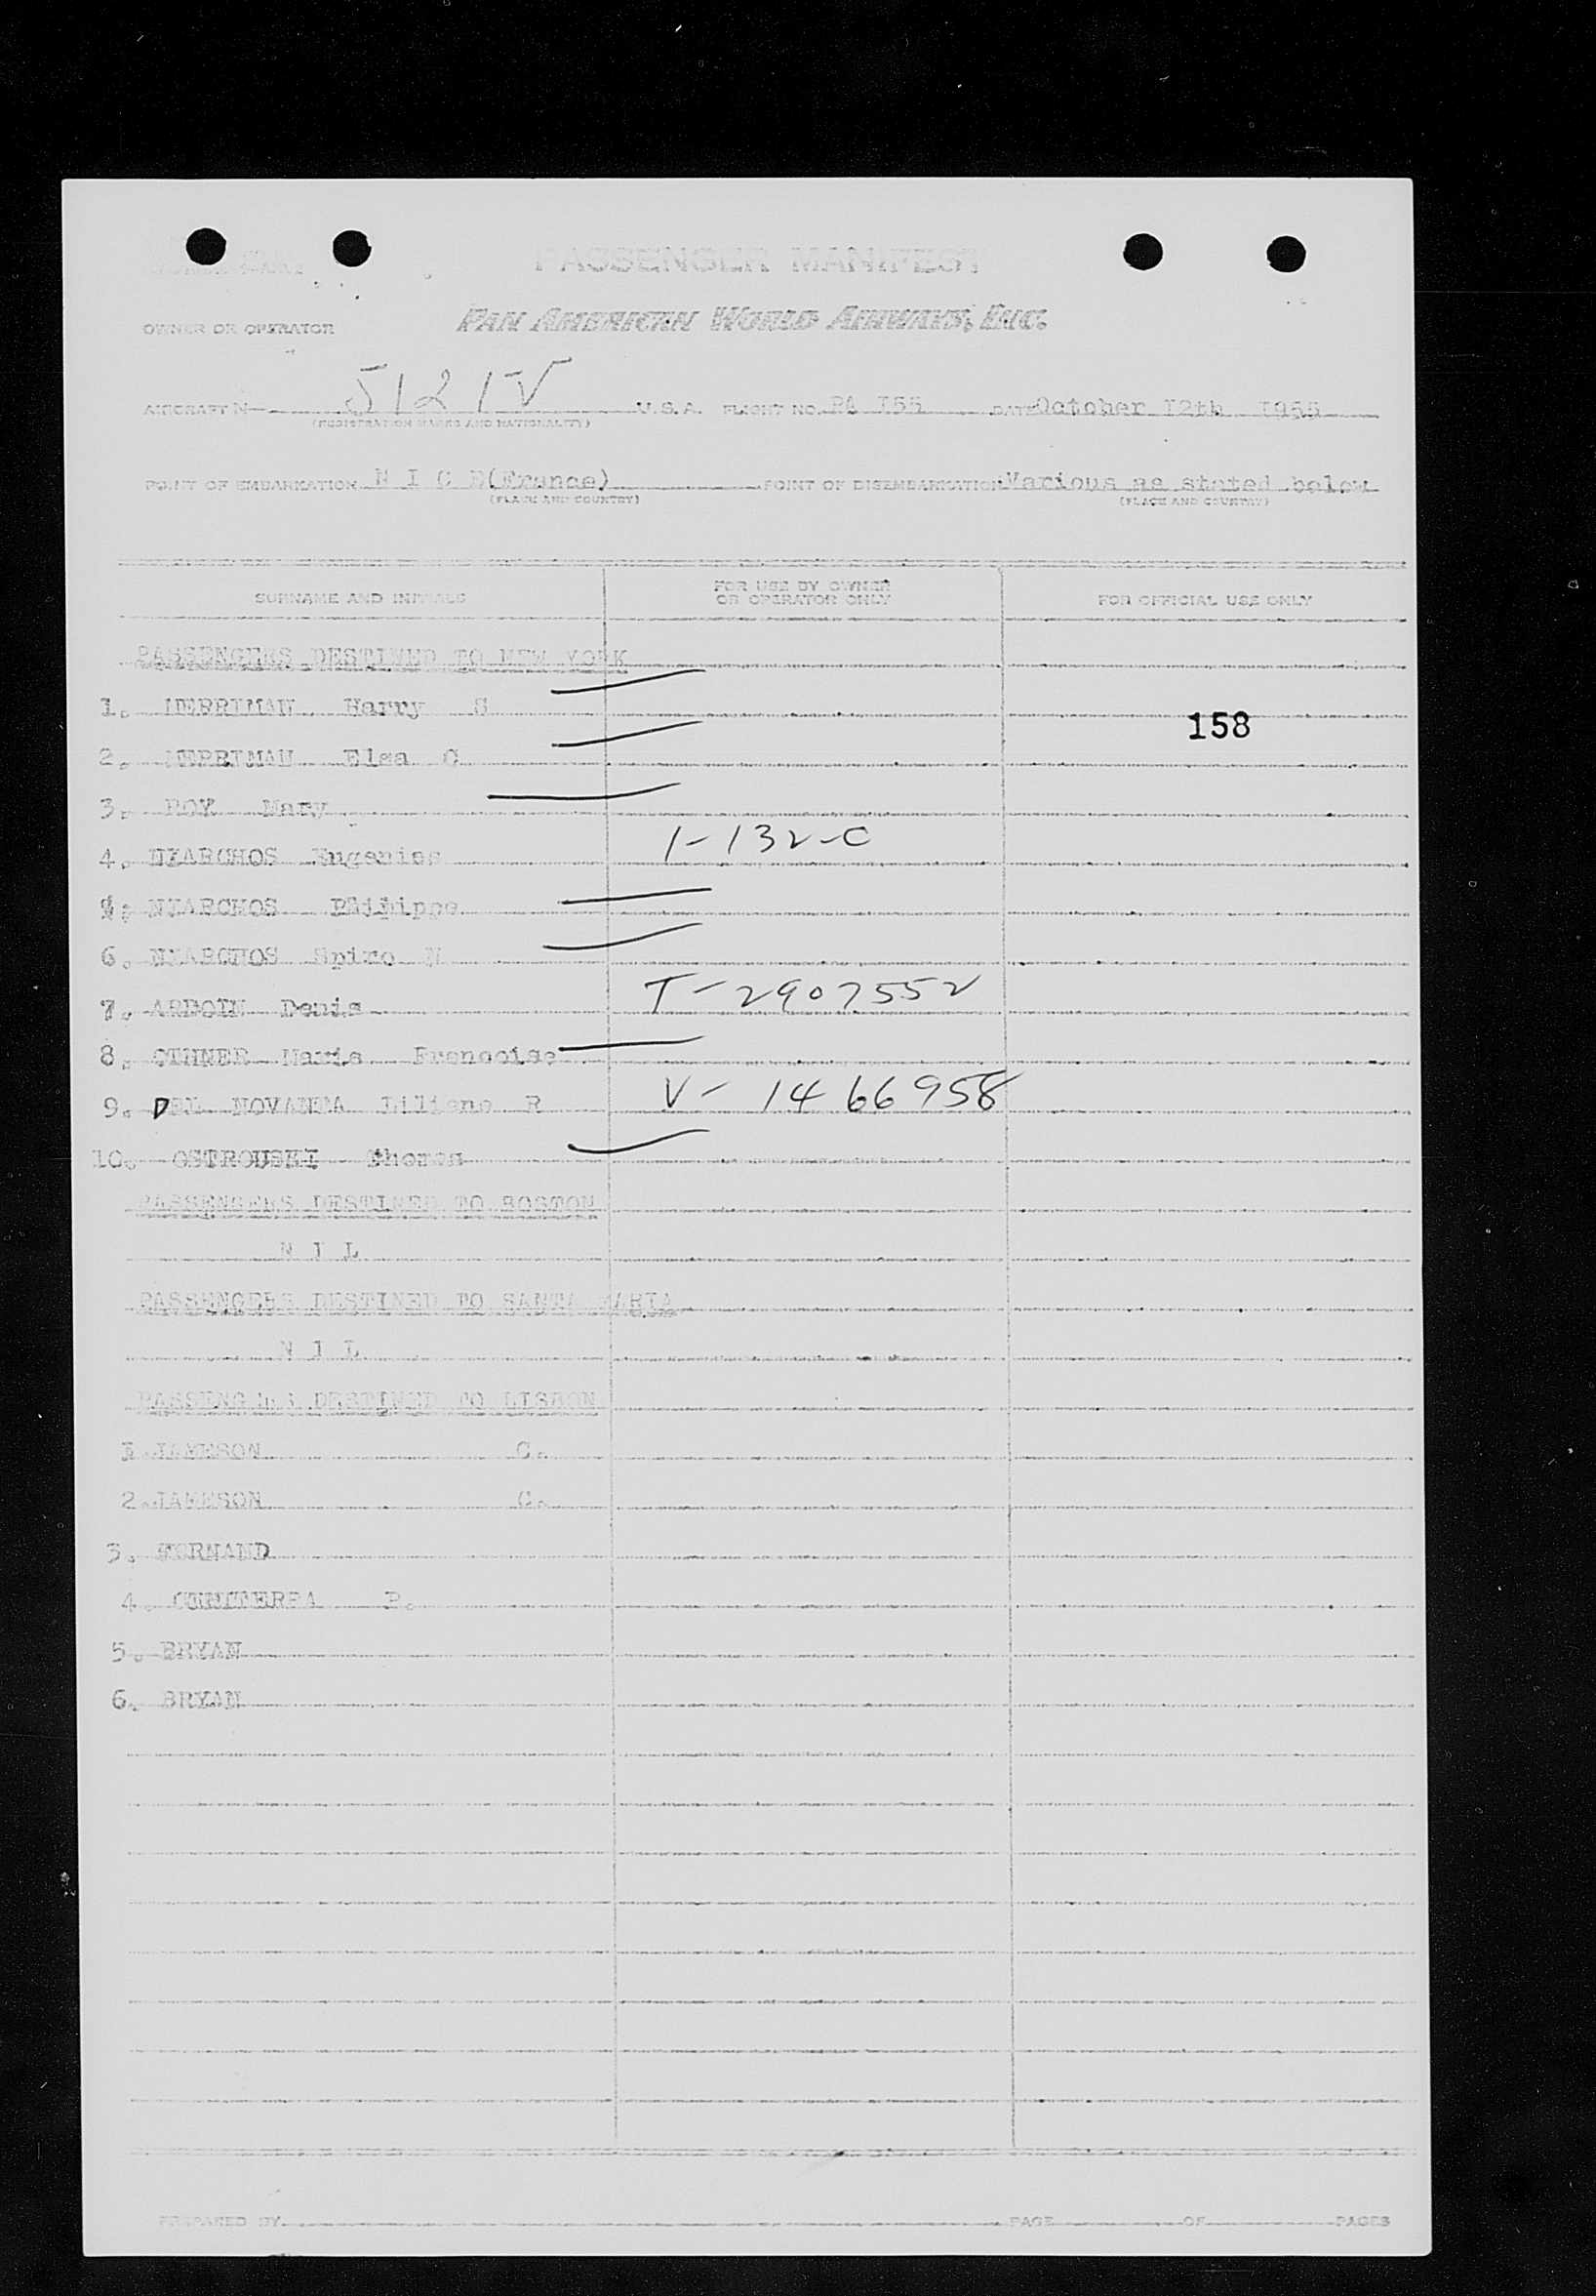 PASSENGER MANIFEST
OWNER OR OPERATOR PAN AMERICAN WORLD AIRWAYS, INC.
AIRCRAFT N 5121V U.S.A. FLIGHT NO. PA I55 DATE October I2th I955
(REGISTRATION MARKS AND NATIONALITY)
POINT OF EMBARKATION N I C E(France) POINT OF DISEMBARKATION Various as stated below
(PLACE AND COUNTRY) (PLACE AND COUNTRY)
SURNAME AND INITIALS FOR USE BY OWNER OR OPERATOR ONLY FOR OFFICIAL USE ONLY
PASSENGERS DESTINED TO NEW YORK
1. MERRIMAN Harry S
158
2. MERRIMAN Elsa C
3. ROY Mary
4. NIARCHOS Eugenies 1-132-C
NIARCHOS Philippe
6. NIARCHOS Spiro N
7. ARDOIN Denis T-2907552
8. OTHNER Maria Francoise
9. DEL NOVANTA Liliane R V-1466958
10. OSTROUSKI Thomas
PASSENGERS DESTINED TO BOSTON
N I L
PASSENGERS DESTINED TO SANTA MARIA
N I L
PASSENGERS DESTINED TO LISBON
I. JAMESON C.
2. JAMESON C.
3. FORNAND
4. P.
5. BRYAN
6. BRYAN
PREPARED BY PAGE OF PAGES